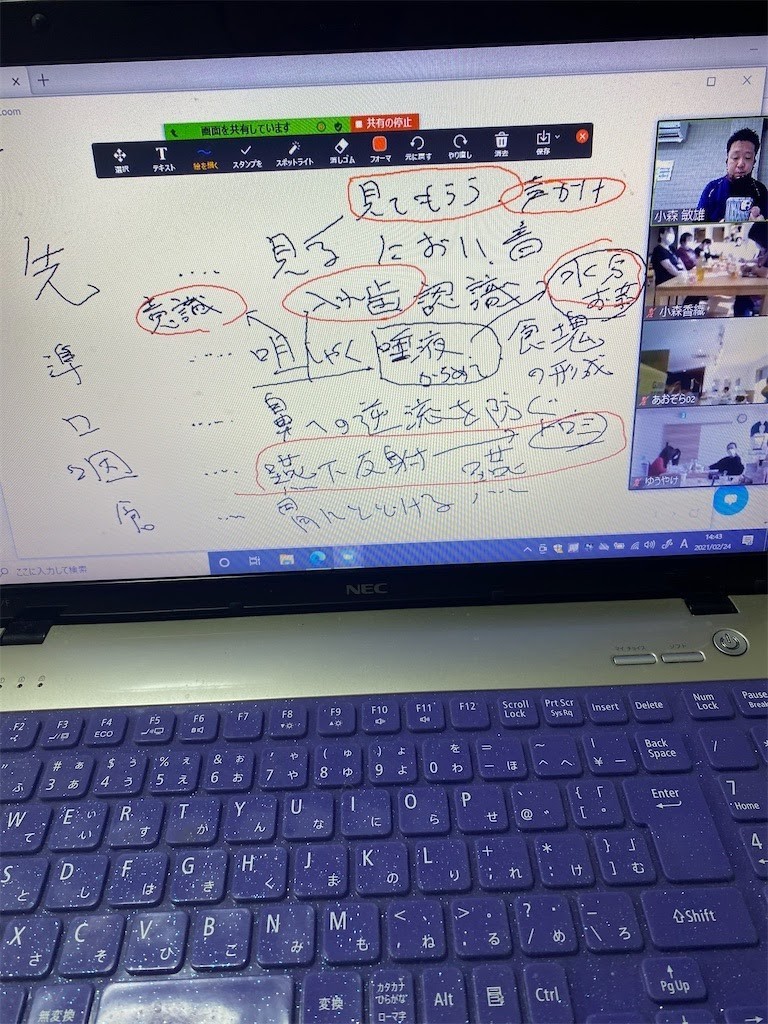 zoom
画面を共有しています 共有の停止
選択 テキスト 絵を描く スタンプを スポットライト 消しゴム フォーマ 元に戻す やり直し 消去 保存
見てもらう 声かけ
先 .... 見る におい、音
意識 入れ歯 認識 水分 お茶
準 .... 咀しゃく 唾液 からめて 食塊 の形成
口 .... 鼻への逆流を防ぐ
咽 .... 嚥下反射 嚥 トロミ
食 .... 胃にとどける
小森 敏雄
小森香織
あおぞら02
ゆうやけ
ここに入力して検索
A 14:43
2021/02/24
NEC
F2 F3 F4 ECO F5 F6 F7 F8 F9 F10 F11 F12 Scroll Lock Prt Scr Sys Rq Insert Delete Num Lock Pause Break
" ふ # ぁ 3 あ $ ぅ 4 う % ぇ 5 え & ぉ 6 お ' ゃ 7 や ( ゅ 8 ゆ ) ょ 9 よ を 0 わ = - ほ ~ ^ へ | ¥ ー Back Space /
W て E ぃ い R す T か Y ん U な I に O ら P せ ` @ ゛ { 「 [ ゜ Enter 7 Home
S と D し F は G き H く J ま K の L り + ; れ * : け } 」 ] む 4
X さ C そ V ひ B こ N み M も < 、 , ね > 。 . る ? ・ / め _ \ ろ ⇧Shift
無変換 変換 カタカナ ひらがな ローマ字 Alt Ctrl PgUp